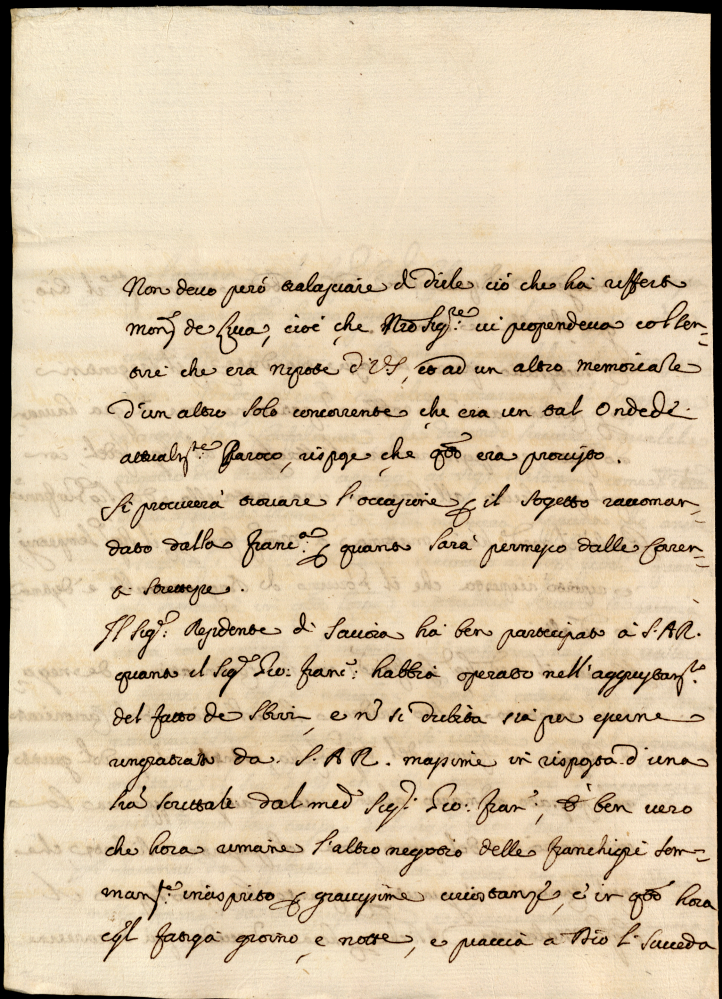 Non devo però tralasciare di dirle ciò che hà rifferto
Mons.r de Luca, cioè che Nro Sig.re vi propendeva col sen=
tire che era nepote di V.S., et ad un altro memoriale
d'un altro solo concorrente che era un tal Ondedei
attualm.te Paroco, rispose che q.to era provisto.
Si procurerà trovare l'occasione p il sogetto raccoman=
dato dalla Franc.a p quanto sarà permesso dalle
strettezze.
Il Sig.r Residente di Savoia hà ben partecipato à S.A.R.
quanto il Sig.r Gio: Franc.o habbia operato nell'aggiustam.to
del fatto de Sbirri, e nō si dubita sia per esserne
ringratiato da S.A.R. massime in risposta d'una
scrittale dal med.o Sig.r Gio: Fran.o, è ben vero
che hora rimane l'altro negotio delle franchigie som=
mam.te inasprito p gravissime circostanze, e in q.to hora
egl. fatiga giorno, e notte, e piaccia a Dio li succeda